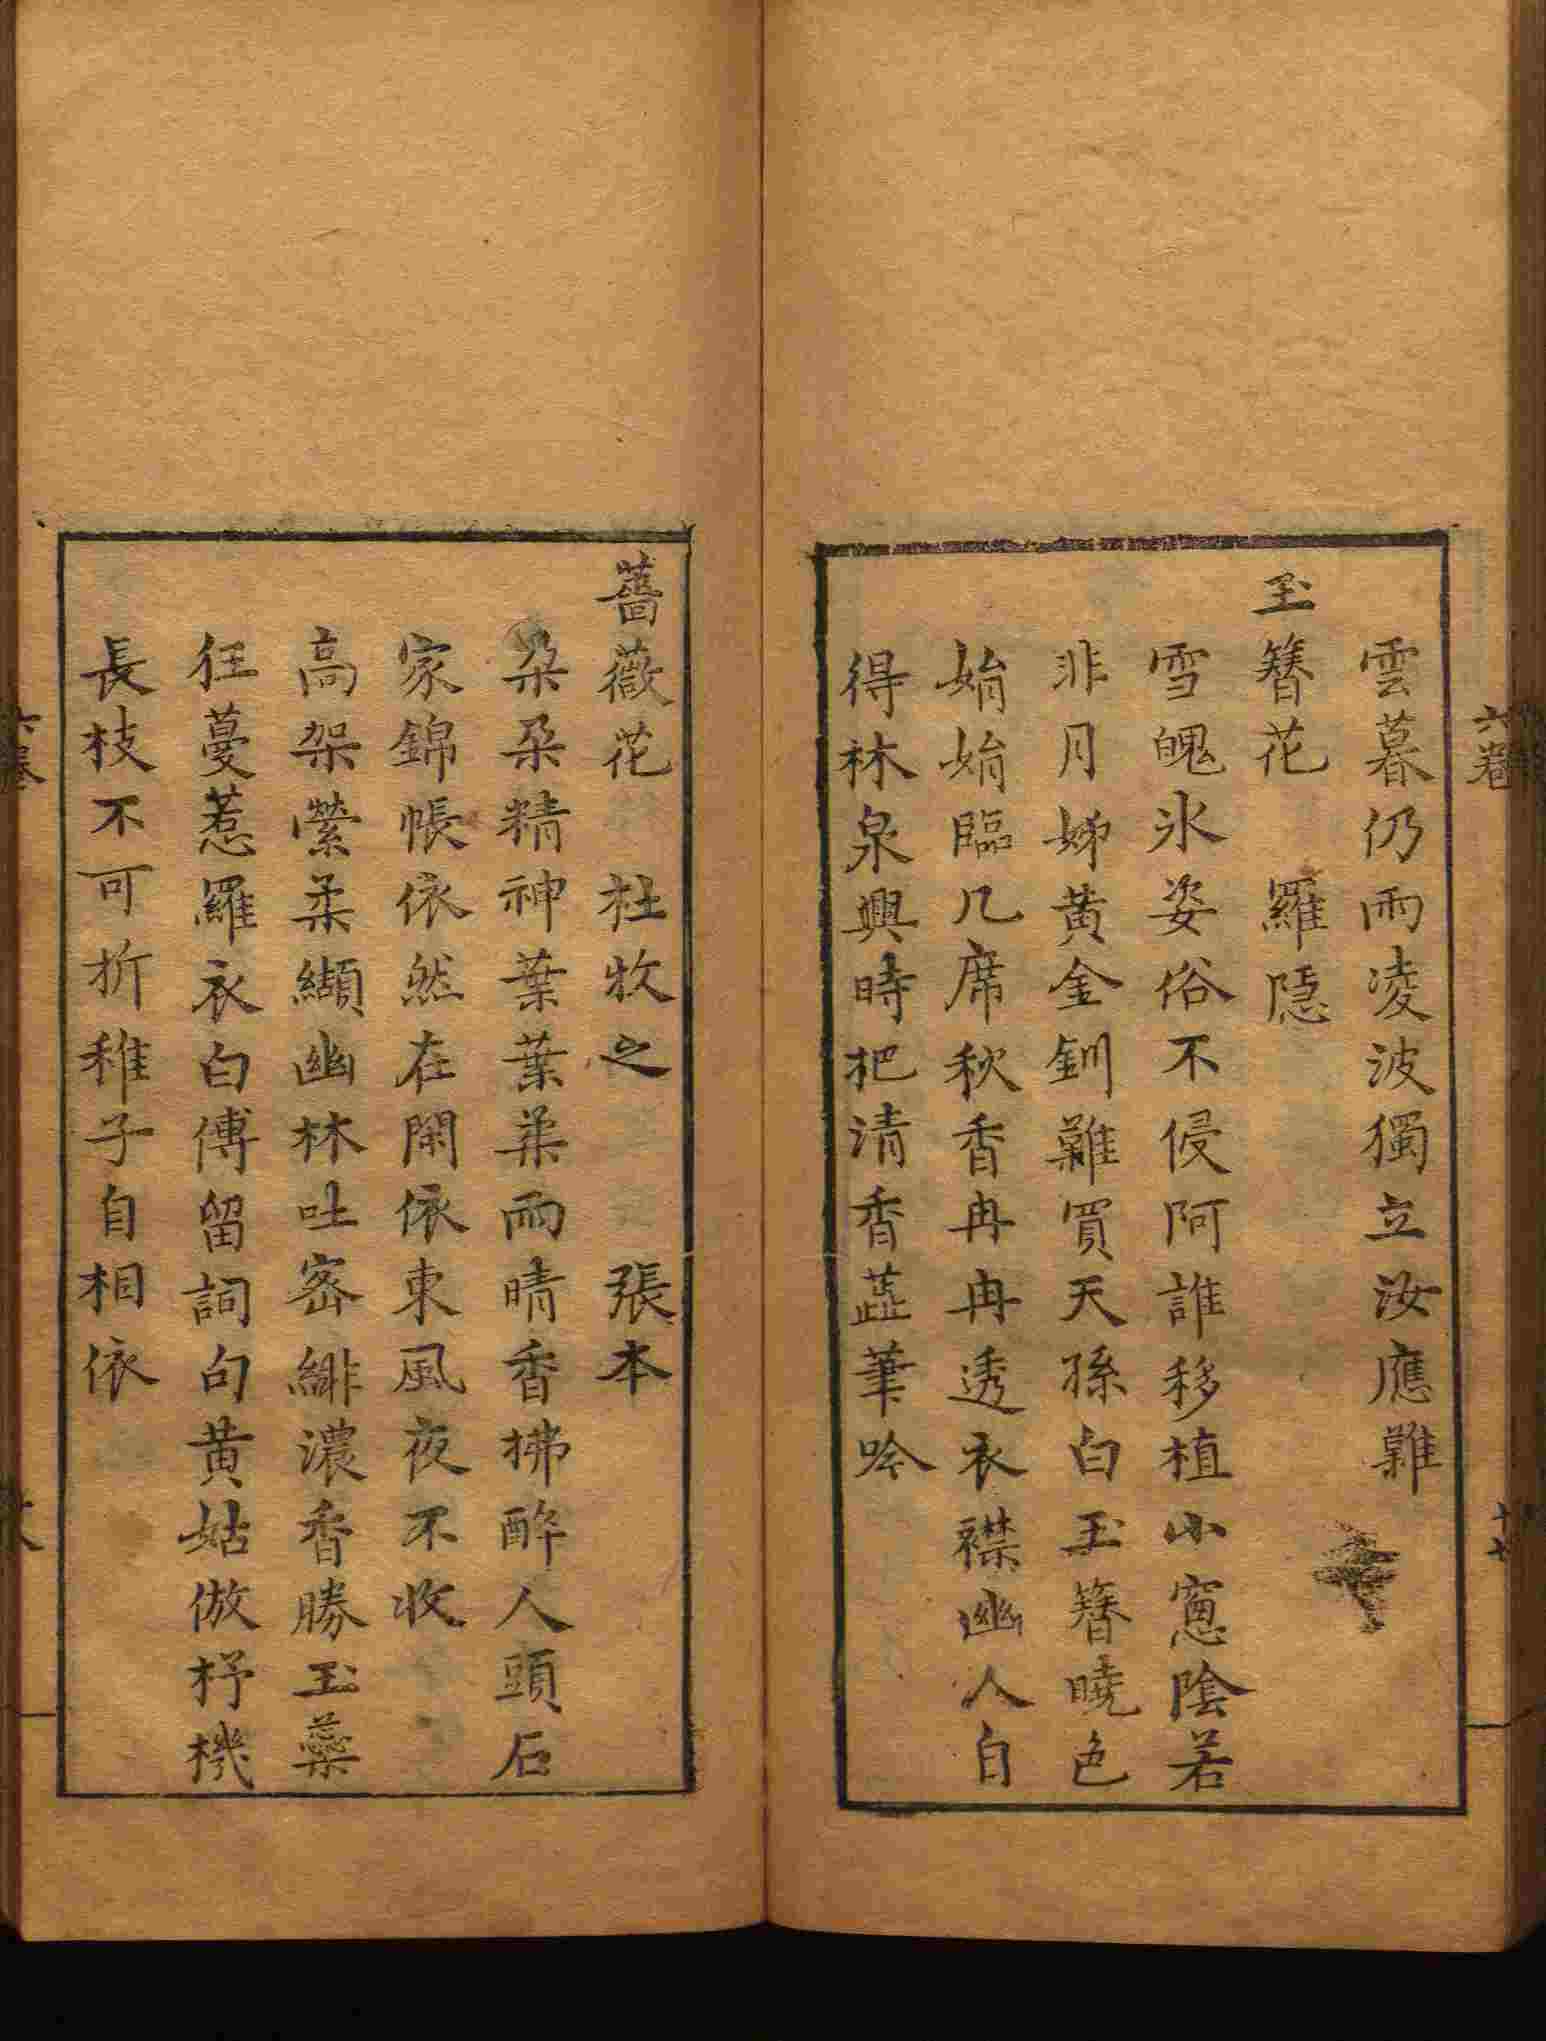 雲暮仍雨凌波獨立汝應難
玉簪花　羅隱
雪魄氷姿俗不侵阿誰移植小窓陰若
非月姊黄金釧難買天孫白玉簪曉色
娟娟臨几席秋香冉冉透衣襟幽人自
得林泉興時把清香蘸筆吟
六卷
十七
薔薇花　杜牧之　張本
朶朶精神葉葉柔雨晴香拂醉人頭石
家錦帳依然在閑依東風夜不收
高架縈柔纈幽林吐密緋濃香勝玉蘂
狂蔓惹羅衣白傅留詞句黄姑倣杼機
長枝不可折稚子自相依
六卷